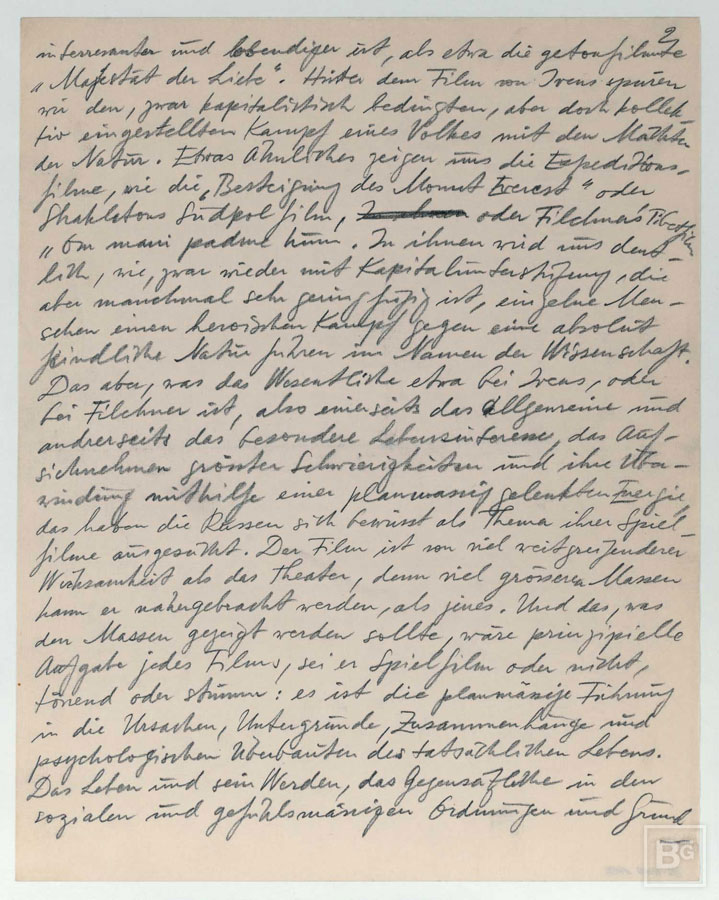 2
interressanter und lebendiger ist, als etwa die getonfilmte
„Majestät der Liebe“. Hinter dem Film von Ivens spüren
wir den, zwar kapitalistisch bedingten, aber doch kollek-
tiv eingestellten Kampf eines Volkes mit den Mächten
der Natur. Etwas Ähnliches zeigen uns die Expeditions-
filme, wie die „Besteigung des Mount Everest“ oder
Shakletons Südpolfilm, oder Filchners Tibetfilm
„Om mani padme hum. In ihnen wird uns deut-
lich, wie, zwar wieder mit Kapitalunterstüzung, die
aber manchmal sehr geringfügig ist, einzelne Men-
schen einen heroischen Kampf gegen eine absolut
feindliche Natur führen im Namen der Wissenschaft.
Das aber, was das Wesentliche etwa bei Ivens, oder
bei Filchner ist, also einerseits das Allgemeine und
andrerseits das besondere Lebensinteresse, das Auf-
sichnehmen grösster Schwierigkeiten und ihre Über-
windung mithilfe einer planmässig gelenkten Energie,
das haben die Russen sich bewusst als Thema ihrer Spiel-
filme ausgesucht. Der Film ist von viel weitgreifenderer
Wirksamkeit als das Theater, denn viel grösseren Massen
kann er nahergebracht werden, als jenes. Und das, was
den Massen gezeigt werden sollte, wäre prinzipielle
Aufgabe jedes Films, sei er Spielfilm oder nicht,
tönend oder stumm: es ist die planmässige Führung
in die Ursachen, Untergründe, Zusammenhänge und
psychologischen Überbauten des tatsächlichen Lebens.
Das Leben und sein Werden, das Gegensätzliche in den
sozialen und gefühlsmässigen Ordnungen und Grund
BG